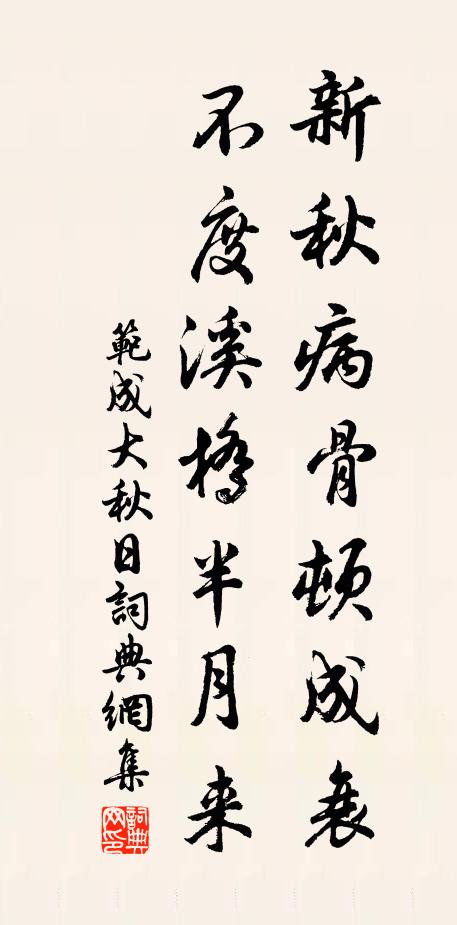 新秋病骨頓成衰
不度溪橋半月来
範成大秋日詞典網集
詞典网印